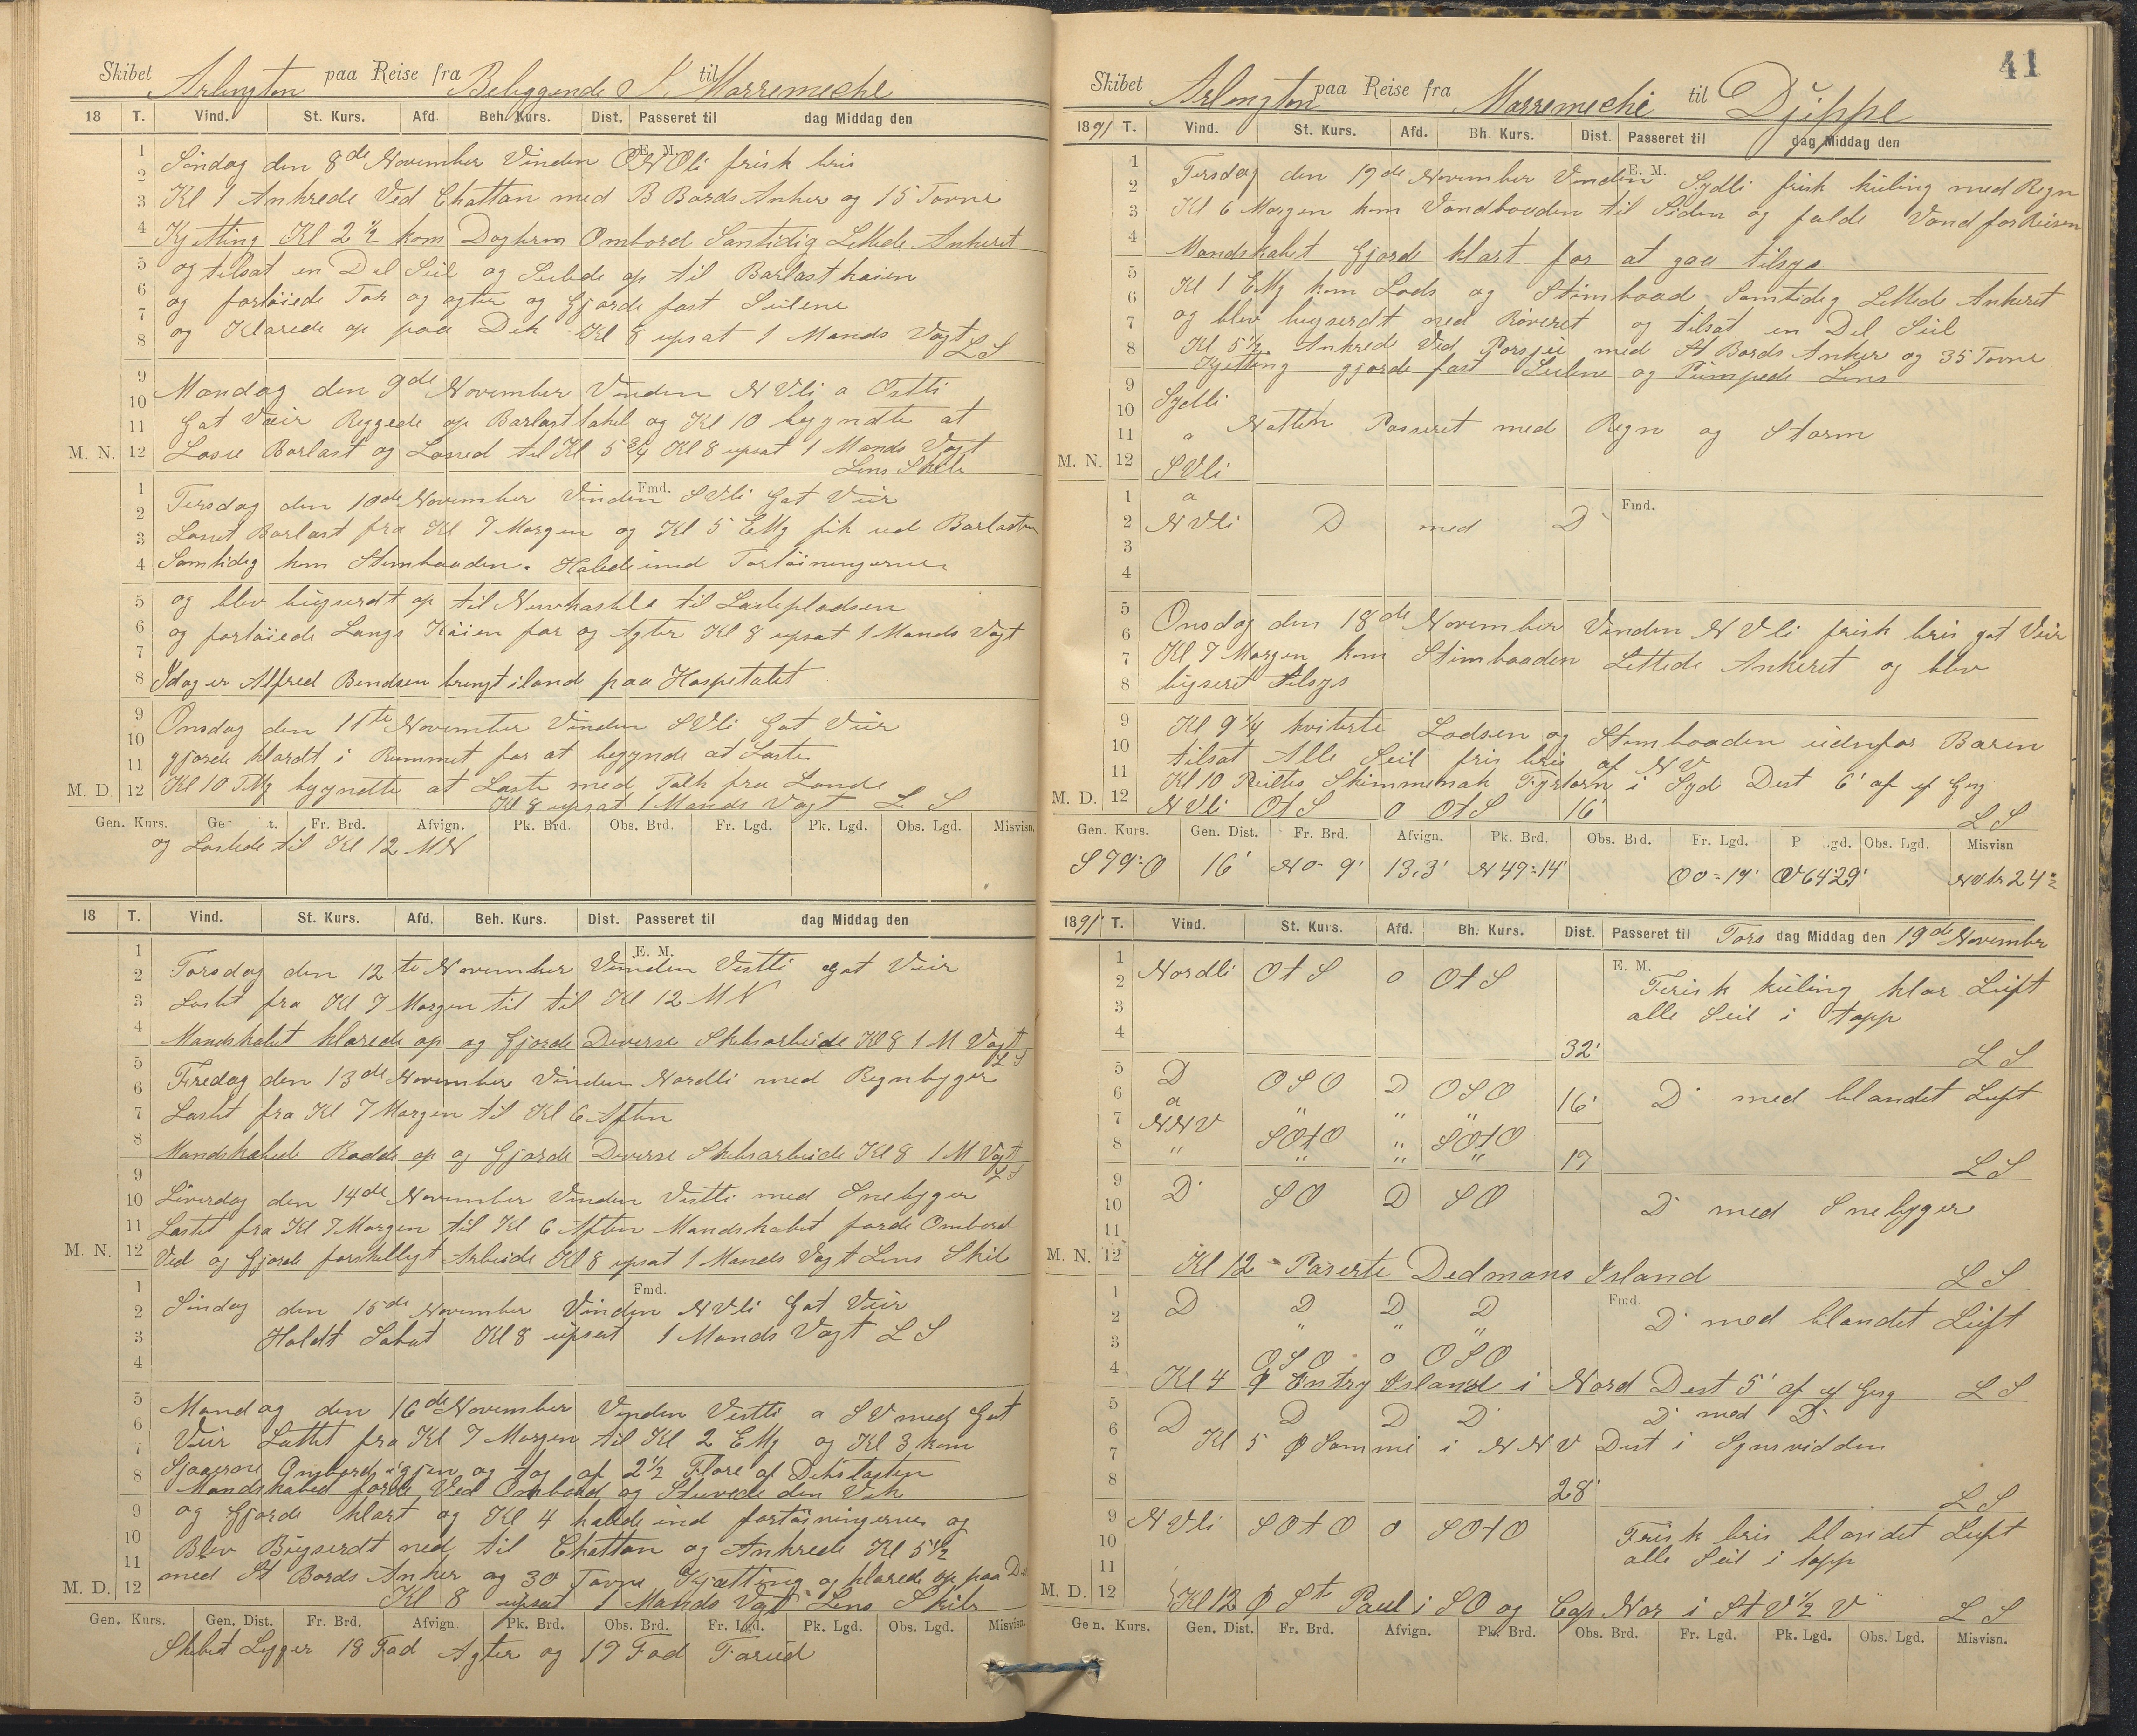 Skibet Arlington paa Reise fra Beliggende i til Marremeche
18 T. Vind. St. Kurs. Afd. Beh. Kurs. Dist. Passeret til dag Middag den
E. M.
Søndag den 8de November Vinden ONOli frisk bris
Kl 1 Ankrede Ved Chattan med B Bords Anker og 15 Favne
Kjetting Kl 2 1/2 kom Ombord Samtidig Lettede Ankeret
og tilsat en Del Seil og Seilede op til Barlastkaien
og fortøiede For og agter og Gjorde fast Seilene
og Klarede op paa Dek Kl 8 upsat 1 Mands Vagt L S
Mandag den 9de November Vinden NVli a Ostli
Gat Væir Reggede op Barlasttakel og Kl 10 begyndte at
Losse Barlast og Lossed til Kl 5 3/4 Kl 8 upsat 1 Mands Vagt
M. N. Lens Skib
Fmd.
Tirsdag den 10de November Vinden SVli Gat Veir
Losset Barlast fra Kl 7 Morgen og Kl 5 EMg fik ud Barlasten
Samtidig kom Stimbaaden. Halede ind Fortøiningerne
og blev bugserdt op til Newkastle til Lastepladsen
og fortøiede Langs Kaien for og Agter Kl 8 upsat 1 Mands Vagt
Idag er Alfred Bendsen bringt iland paa Hospetalet
Onsdag den 11te November Vinden SVli Gat Veir
gjorde klardt i Rummet for at begynde at Laste
M. D. Kl 10 FMg begyndte at Laste med Folk fra Lande
Kl 8 upsat 1 Mands Vagt L S
Gen. Kurs. Fr. Brd. Afvign. Pk. Brd. Obs. Brd. Fr. Lgd. Pk. Lgd. Obs. Lgd. Misvisn.
og Lastede til Kl 12 MN
18 T. Vind. St. Kurs. Afd. Beh. Kurs. Dist. Passeret til dag Middag den
E. M.
Torsdag den 12te November Vinden Vestli Gat Veir
Lastet fra Kl 7 Morgen til til Kl 12 MN
Mandskabet klarede op og Gjorde Diverse Skibsarbeide Kl 8 1 M Vagt
L S
Fredag den 13de November Vinden Nordli med Regnbyger
Lastet fra Kl 7 Morgen til Kl 6 Aften
Mandskabede Rodde op og Gjorde Diverse Skibsarbeide Kl 8 1 M Vagt
L S
Løverdag den 14de November Vinden Vestli med Snebyger
Lastet fra Kl 7 Morgen til Kl 6 Aften Mandskabet førde Ombord
M. N. Ved og Gjorde forskelligt Arbeide Kl 8 upsat 1 Mands Vagt Lens Skib
Fmd.
Søndag den 15de November Vinden NVli Gat Veir
Holdt Sabat Kl 8 upsat 1 Mands Vagt L S
Mandag den 16de November Vinden Vestli a SV med Gat
Veir Lastet fra Kl 7 Morgen til Kl 2 EMg og Kl 3 kom
Sjauerne Ombord igjen og tog af 2 1/2 Flore af Dekslasten
Mandskabed førde Ved Ombord og Stuvede den Vek
og Gjorde klart og Kl 4 halede ind fortøiningerne og
Blev Bugserdt ned til Chattan og Ankrede Kl 5 1/2
M. D. med St Bords Anker og 30 Favne Kjætting og klarede op paa D
Kl 8 upsat 1 Mands Vagt Lens Skib
Gen. Kurs. Gen. Dist. Fr. Brd. Afvign. Pk. Brd. Obs. Brd. Fr. Lgd. Pk. Lgd. Obs. Lgd. Misvisn.
Skibet Ligger 18 Fod Agter og 17 Fod Forud
41
Skibet Arlengton paa Reise fra Marremeche til Djeppe
1891 T. Vind. St. Kurs. Afd. Bh. Kurs. Dist. Passeret til dag Middag den
E. M.
Tirsdag den 17de November Vinden Sydli frisk kuling med Regn
Kl 6 Morgen kom Vandbaaden til Siden og fulde Vand for Reisen
Mandskabet Gjorde klart for at gaa tilsys
Kl 1 EMg kom Lods og Stimbaad Samtidig Lettede Ankeret
og blev bugserdt ned Røveret og tilsat en Del Seil
Kl 5 1/2 Ankrede Ved med St Bords Anker og 35 Favne
Kjetting gjorde fast Seilene og Pumpede Lens
Sydli
a Natten Passeret med Regn og Storm
M. N. SVli
a
Fmd.
NVli D med D
Onsdag den 18de November Vinden NVli frisk bris gat Veir
Kl 7 Morgen kom Stimbaaden Lettede Ankeret og blev
bugseret tilsys
Kl 9 1/4 kviterte Lodsen og Stimbaaden udenfor Baren
tilsat Alle Seil fris bris af NV
Kl 10 Peiltes Skimmenak Fyrtorn i Syd Dist 6' af ef Geg
M. D. NVli OtS 0 OtS 16' L S
Gen. Kurs. Gen. Dist. Fr. Brd. Afvign. Pk. Brd. Obs. Brd. Fr. Lgd. Obs. Lgd. Misvisn
S 79° O 16' N 0° 9' 13,3' N 47° 14' O 0° 19' V 64° 29' NVli 24°
1891 T. Vind. St. Kurs. Afd. Bh. Kurs. Dist. Passeret til Tors dag Middag den 19de November
E. M.
Nordli OtS 0 OtS Frisk kuling klar Luft
alle Seil i topp
32' L S
D OSO D OSO 16' D med blandet Luft
a " " "
NNV SOtO " SOtO
" " " " 17 L S
D SO D SO D med Snebyger
M. N. Kl 12 Paserte Dedmans Island L S
Fmd.
D D D D D med blandet Luft
" " "
OSO 0 OSO
Kl 4 Entry Island i Nord Dist 5' af ef Geg L S
D D D D D med D
Kl 5 i NNV Dist i Synsvidden
28' L S
NVli SOtO 0 SOtO Frisk bris blandet Luft
alle Seil i topp
M. D. Kl 12 St Paul i SO og Cap Nor i StV 1/2 V L S
Gen. Kurs. Gen. Dist. Fr. Brd. Afvign. Pk. Brd. Obs. Brd. Fr. Lgd. Pk. Lgd. Obs. Lgd. Misvisn.